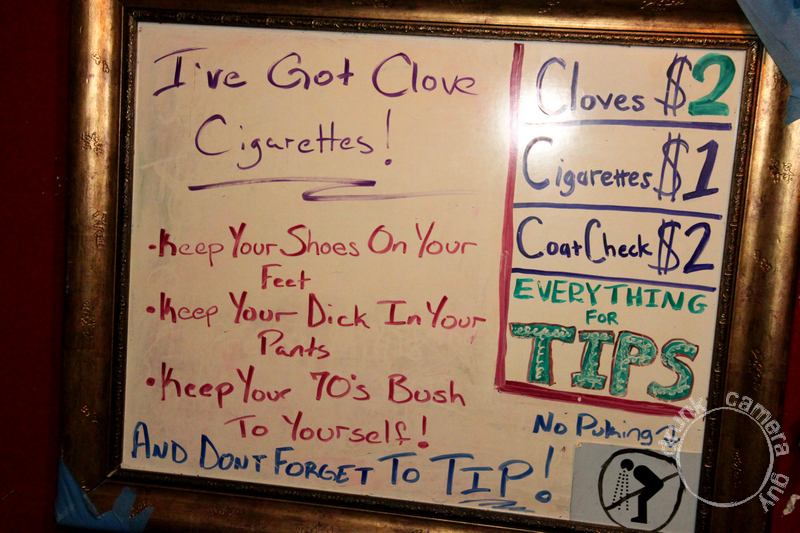 I've Got Clove
Cigarettes!
• Keep Your Shoes On Your
Feet
• Keep Your Dick In Your
Pants
• Keep Your 70's Bush
To Yourself!
And Dont Forget To Tip!
Cloves $2
Cigarettes $1
Coat Check $2
EVERYTHING
FOR
TIPS
No Puking
drunk camera guy